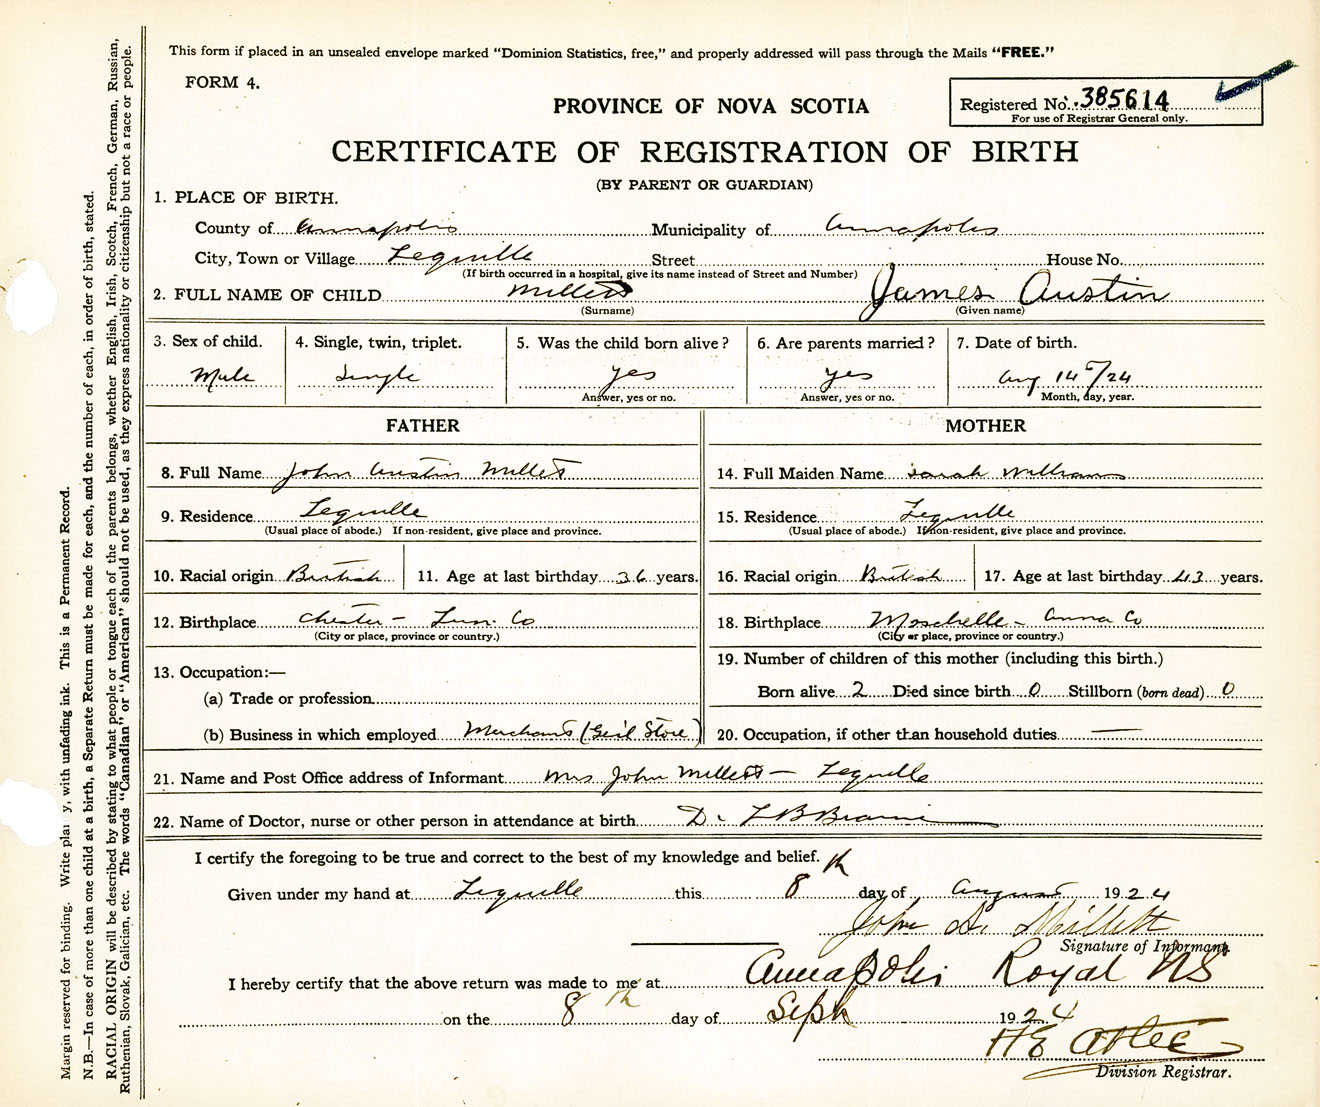 This form if placed in an unsealed envelope marked “Dominion Statistics, free,” and properly addressed will pass through the Mails “FREE.”
FORM 4.
PROVINCE OF NOVA SCOTIA
Registered No. 385614
For use of Registrar General only.
CERTIFICATE OF REGISTRATION OF BIRTH
(BY PARENT OR GUARDIAN)
1. PLACE OF BIRTH.
County of Annapolis Municipality of Annapolis
City, Town or Village Lequille Street House No.
(If birth occurred in a hospital, give its name instead of Street and Number)
2. FULL NAME OF CHILD Millett James Austin
(Surname) (Given name)
3. Sex of child. 4. Single, twin, triplet. 5. Was the child born alive? 6. Are parents married? 7. Date of birth.
Male Single yes yes Aug 14th/24
Answer, yes or no. Answer, yes or no. Month, day, year.
FATHER MOTHER
8. Full Name John Austin Millett 14. Full Maiden Name Sarah Williams
9. Residence Lequille 15. Residence Lequille
(Usual place of abode.) If non-resident, give place and province. (Usual place of abode.) If non-resident, give place and province.
10. Racial origin British 11. Age at last birthday 36 years. 16. Racial origin British 17. Age at last birthday 43 years.
12. Birthplace Chester - Lun. Co 18. Birthplace Moschelle - Anna Co
(City or place, province or country.) (City or place, province or country.)
13. Occupation:— 19. Number of children of this mother (including this birth.)
(a) Trade or profession Born alive 2 Died since birth 0 Stillborn (born dead) 0
(b) Business in which employed Merchant (Gen'l Store) 20. Occupation, if other than household duties —
21. Name and Post Office address of Informant Mrs John Millett — Lequille
22. Name of Doctor, nurse or other person in attendance at birth Dr L B Braine
I certify the foregoing to be true and correct to the best of my knowledge and belief.
Given under my hand at Lequille this 8th day of August 1924
John A. Millett
Signature of Informant.
I hereby certify that the above return was made to me at Annapolis Royal NS
on the 8th day of Sept 1924
H E
Division Registrar.
Margin reserved for binding. Write plai y, with unfading ink. This is a Permanent Record.
N.B.—In case of more than one child at a birth, a Separate Return must be made for each, and the number of each, in order of birth, stated.
RACIAL ORIGIN will be described by stating to what people or tongue each of the parents belongs, whether English, Irish, Scotch, French, German, Russian,
Ruthenian, Slovak, Galician, etc. The words “Canadian” or “American” should not be used, as they express nationality or citizenship but not a race or people.